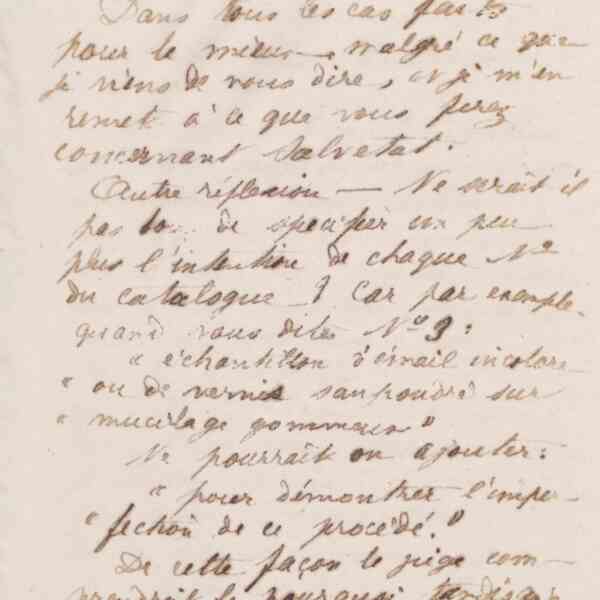 Dans tous les cas faites
pour le mieux, malgré ce que
je viens de vous dire, et je m'en
remet à ce que vous ferez
concernant Salvetat.
Autre réflexion — Ne serait il
pas bon de spécifier un peu
plus l'intention de chaque No
du catalogue ? Car par exemple
quand vous dites No 3 :
" échantillon d'émail incolore
" ou de vernis saupoudré sur
" mucilage gommeux "
Ne pourrait on ajouter :
" pour démontrer l'imper-
" fection de ce procédé. "
De cette façon le juge com-
prendrait le pourquoi tandis qu'